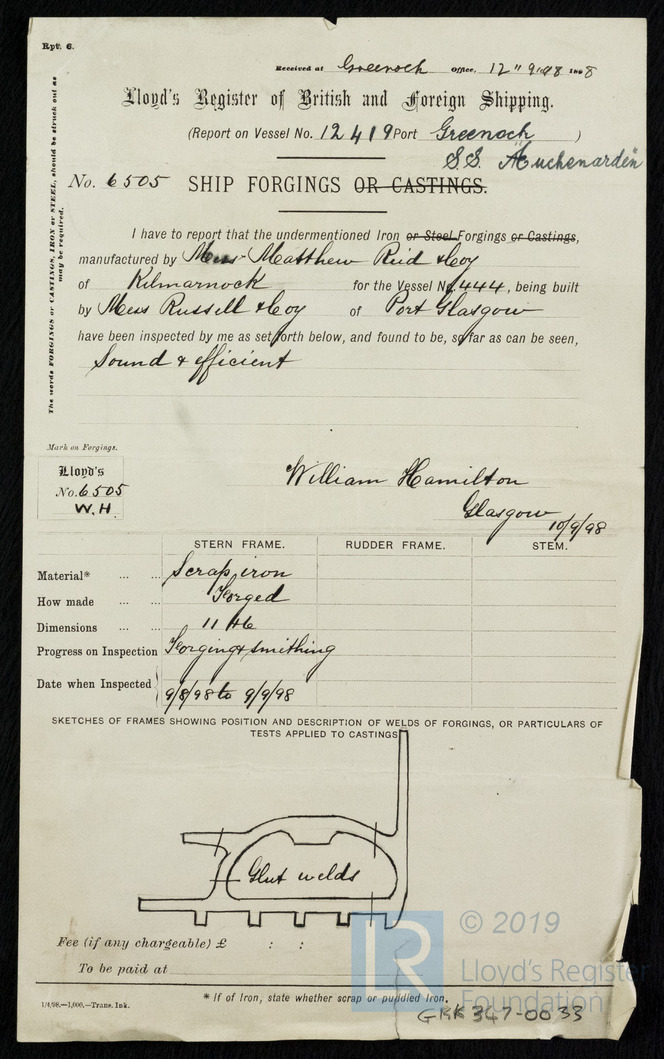 Rpt. 6.
Received at Greenock Office, 12" 9.98 1898
Lloyd's Register of British and Foreign Shipping.
(Report on Vessel No. 12419 Port Greenock )
S.S. "Auchenarden"
No. 6505 SHIP FORGINGS OR CASTINGS.
The words FORGINGS or CASTINGS, IRON or STEEL, should be struck out as
may be required.
I have to report that the undermentioned Iron or Steel Forgings or Castings,
manufactured by Messrs Matthew Reid & Coy
of Kilmarnock for the Vessel No. 444, being built
by Mess Russell & Coy of Port Glasgow
have been inspected by me as set forth below, and found to be, so far as can be seen,
Sound & efficient
Mark on Forgings.
Lloyd's
No. 6505
W.H.
William Hamilton
Glasgow 10/9/98
STERN FRAME. RUDDER FRAME. STEM.
Material* ... ... Scrap iron
How made ... ... Forged
Dimensions ... ...
Progress on Inspection Forging & smithing
Date when Inspected 9/8/98 to 9/9/98
SKETCHES OF FRAMES SHOWING POSITION AND DESCRIPTION OF WELDS OF FORGINGS, OR PARTICULARS OF
TESTS APPLIED TO CASTINGS.
Glut welds
Fee (if any chargeable) £ : :
To be paid at
* If of Iron, state whether scrap or puddled Iron.
1/4/98.—1,000.—Trans. Ink.
LR
© 2019
Lloyd's Register
Foundation
GRK 347-0033